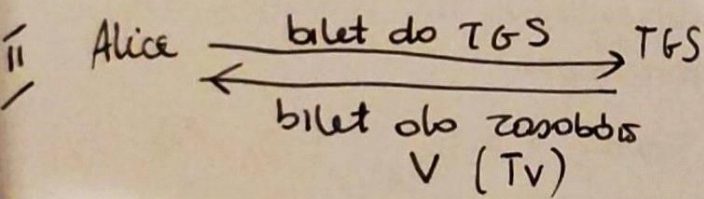 II Alice bilet do TGS TGS
bilet do zasobów
V (Tv)